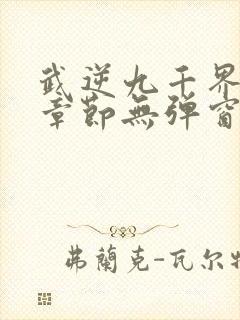 武逆九千界
章節無彈窗
弗蘭克-瓦尔特